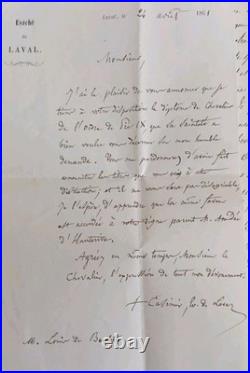 Evêché
de
LAVAL.
Laval, le 24 avril 1861
Monsieur,
J'ai le plaisir de vous annoncer que je
tiens à votre disposition le diplôme de Chevalier
de l'ordre de Pie IX que Sa Sainteté a
bien voulu vous décerner sur mon humble
demande. Vous me pardonnerez d'avoir fait
connaître les titres que vous avez à cette
distinction; et il ne vous sera pas désagréable,
je l'espère, d'apprendre que la même faveur
est accordée à votre digne parent M. André
d'Hauterive.
Agréez en même temps, Monsieur le
Chevalier, l'expression de tout mon dévouement.
+ Casimir, Ev. de Laval
M. Louis de